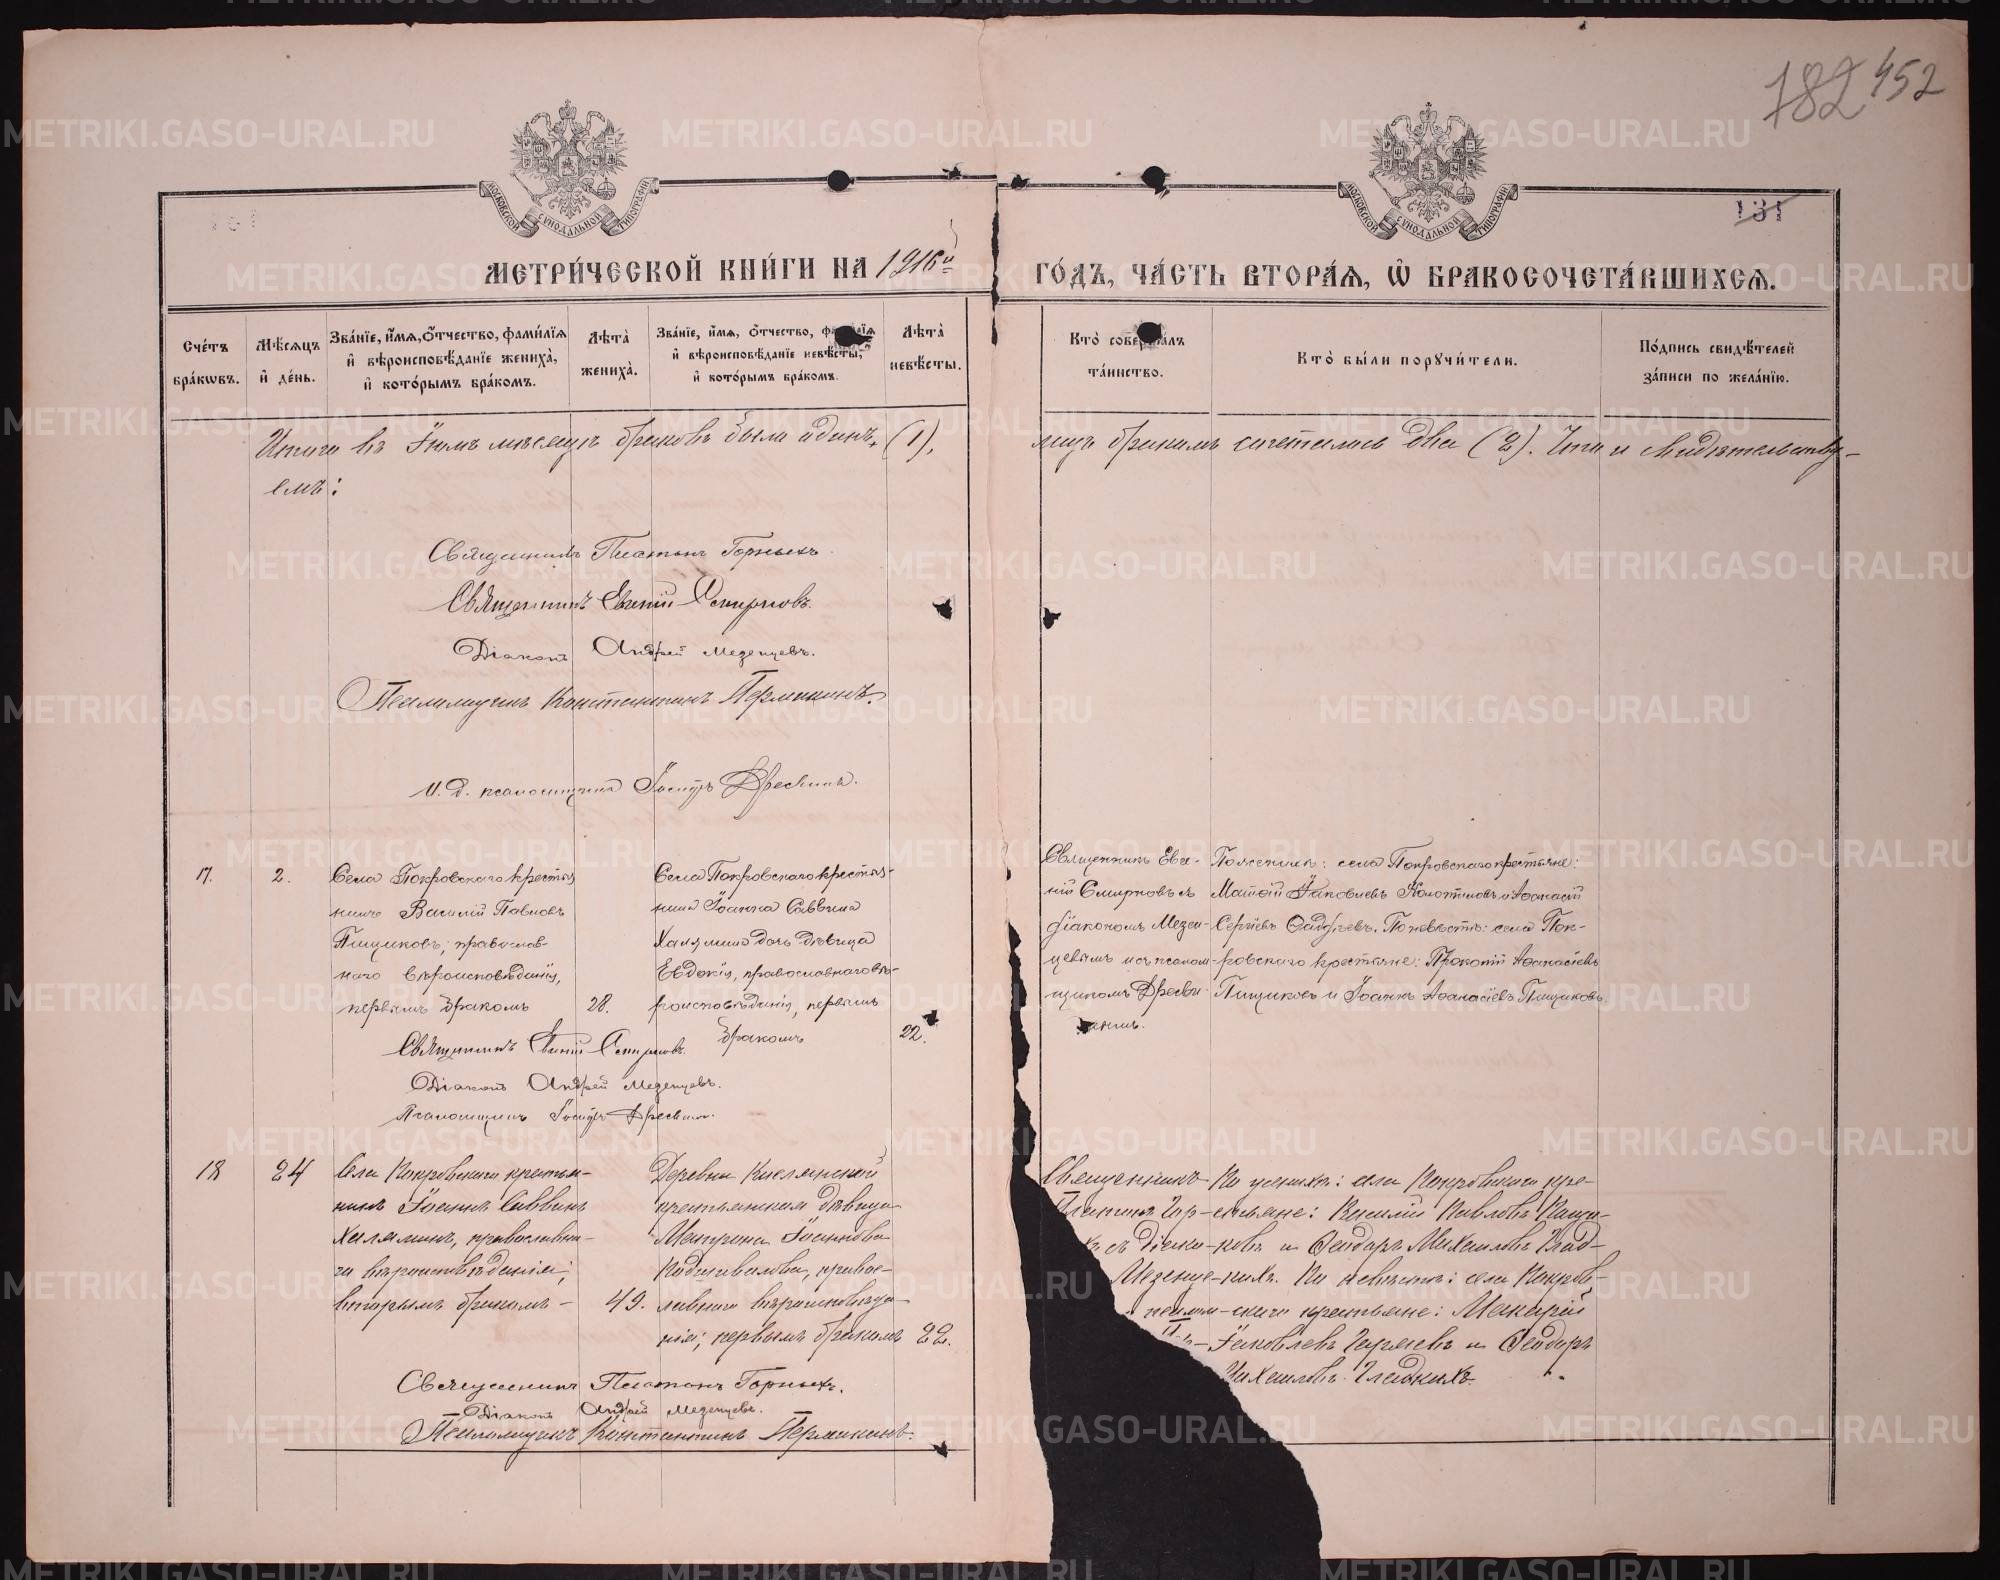 182 452
131
МОСКОВСКОЙ СУНОДАЛЬНОЙ ТИПОГРАФІИ
МОСКОВСКОЙ СУНОДАЛЬНОЙ ТИПОГРАФІИ
МЕТРИ́ЧЕСКОЙ КНИ́ГИ НА 1916й ГО́ДЪ, ЧА́СТЬ ВТОРА́Я, Ѡ҆ БРАКОСОЧЕТА́ВШИХСЯ.
Сче́тъ бра́кѡвъ.
Мѣ́сяцъ и҆ де́нь.
Зва́нїе, и҆́мя, ѻ҆́тчество, фами́лїя и҆ вѣроисповѣ́данїе жениха̀, и҆ кото́рымъ бра́комъ.
Лѣ́та̀ жениха̀.
Зва́нїе, и҆́мя, ѻ҆́тчество, фами́лїя и҆ вѣроисповѣ́данїе невѣ́сты, и҆ кото́рымъ бра́комъ.
Лѣ́та̀ невѣ́сты.
Кто̀ соверша́лъ та́инство.
Кто̀ бы́ли порꙋчи́тели.
По́дпись свидѣ́телей за́писи по жела́нїю.
Итого въ Іюнѣ мѣсяцѣ браковъ былъ одинъ, (1), лицъ бракомъ сочеталось два (2). Что и свидѣтельству-
емъ:
Священникъ Платонъ Горныхъ.
Священникъ Евгеній Смирновъ.
Діаконъ Андрей Мезенцевъ.
Псаломщикъ Константинъ Пермикинъ.
И. д. псаломщика Іосифъ Дресвинъ.
17.
2.
Села Покровскаго крестья
нинъ Василій Павловъ
Пищиковъ, православ-
наго вѣроисповѣданія,
первымъ бракомъ
28.
Села Покровскаго крестья-
нина Іоанна Саввина
Халямина дочь дѣвица
Евдокія, православнаго вѣ-
роисповѣданія, первымъ
бракомъ
22.
Священникъ Евге-
ній Смирновъ съ
діакономъ Мезен-
цевымъ и съ псалом-
щикомъ Дресви-
нымъ.
По женихѣ: села Покровскаго крестьяне:
Матѳій Іаковлевъ Колотиловъ и Аѳанасій
Сергіевъ Ѳаддѣевъ. По невѣстѣ: села Пок-
ровскаго крестьяне: Прокопій Аѳанасіевъ
Пищиковъ и Іоаннъ Аѳанасіевъ Пищиковъ.
Священникъ Евгеній Смирновъ.
Діаконъ Андрей Мезенцевъ.
Псаломщикъ Іосифъ Дресвинъ.
18
24
Села Покровскаго крестья-
нинъ Іоаннъ Саввинъ
Халяминъ, православна-
го вѣроисповѣданія,
вторымъ бракомъ –
49.
Деревни
крестьянская дѣвица
Матрона Іоаннова
православнаго вѣроисповѣда-
нія; первымъ бракомъ
22.
Священникъ
Платонъ Гор-
хъ съ діако-
Мезенце-
псалом-
По женихѣ: села Покровскаго кре-
стьяне: Василій Павловъ Пищи-
ковъ и Ѳеодоръ Михаиловъ Глад-
кихъ. По невѣстѣ: села Покров-
скаго крестьяне: Макарій
Іаковлевъ и Ѳеодоръ
Михаиловъ Гладкихъ.
Священникъ Платонъ Горныхъ.
Діаконъ Андрей Мезенцевъ.
Псаломщикъ Константинъ Пермикинъ.
METRIKI.GASO-URAL.RU